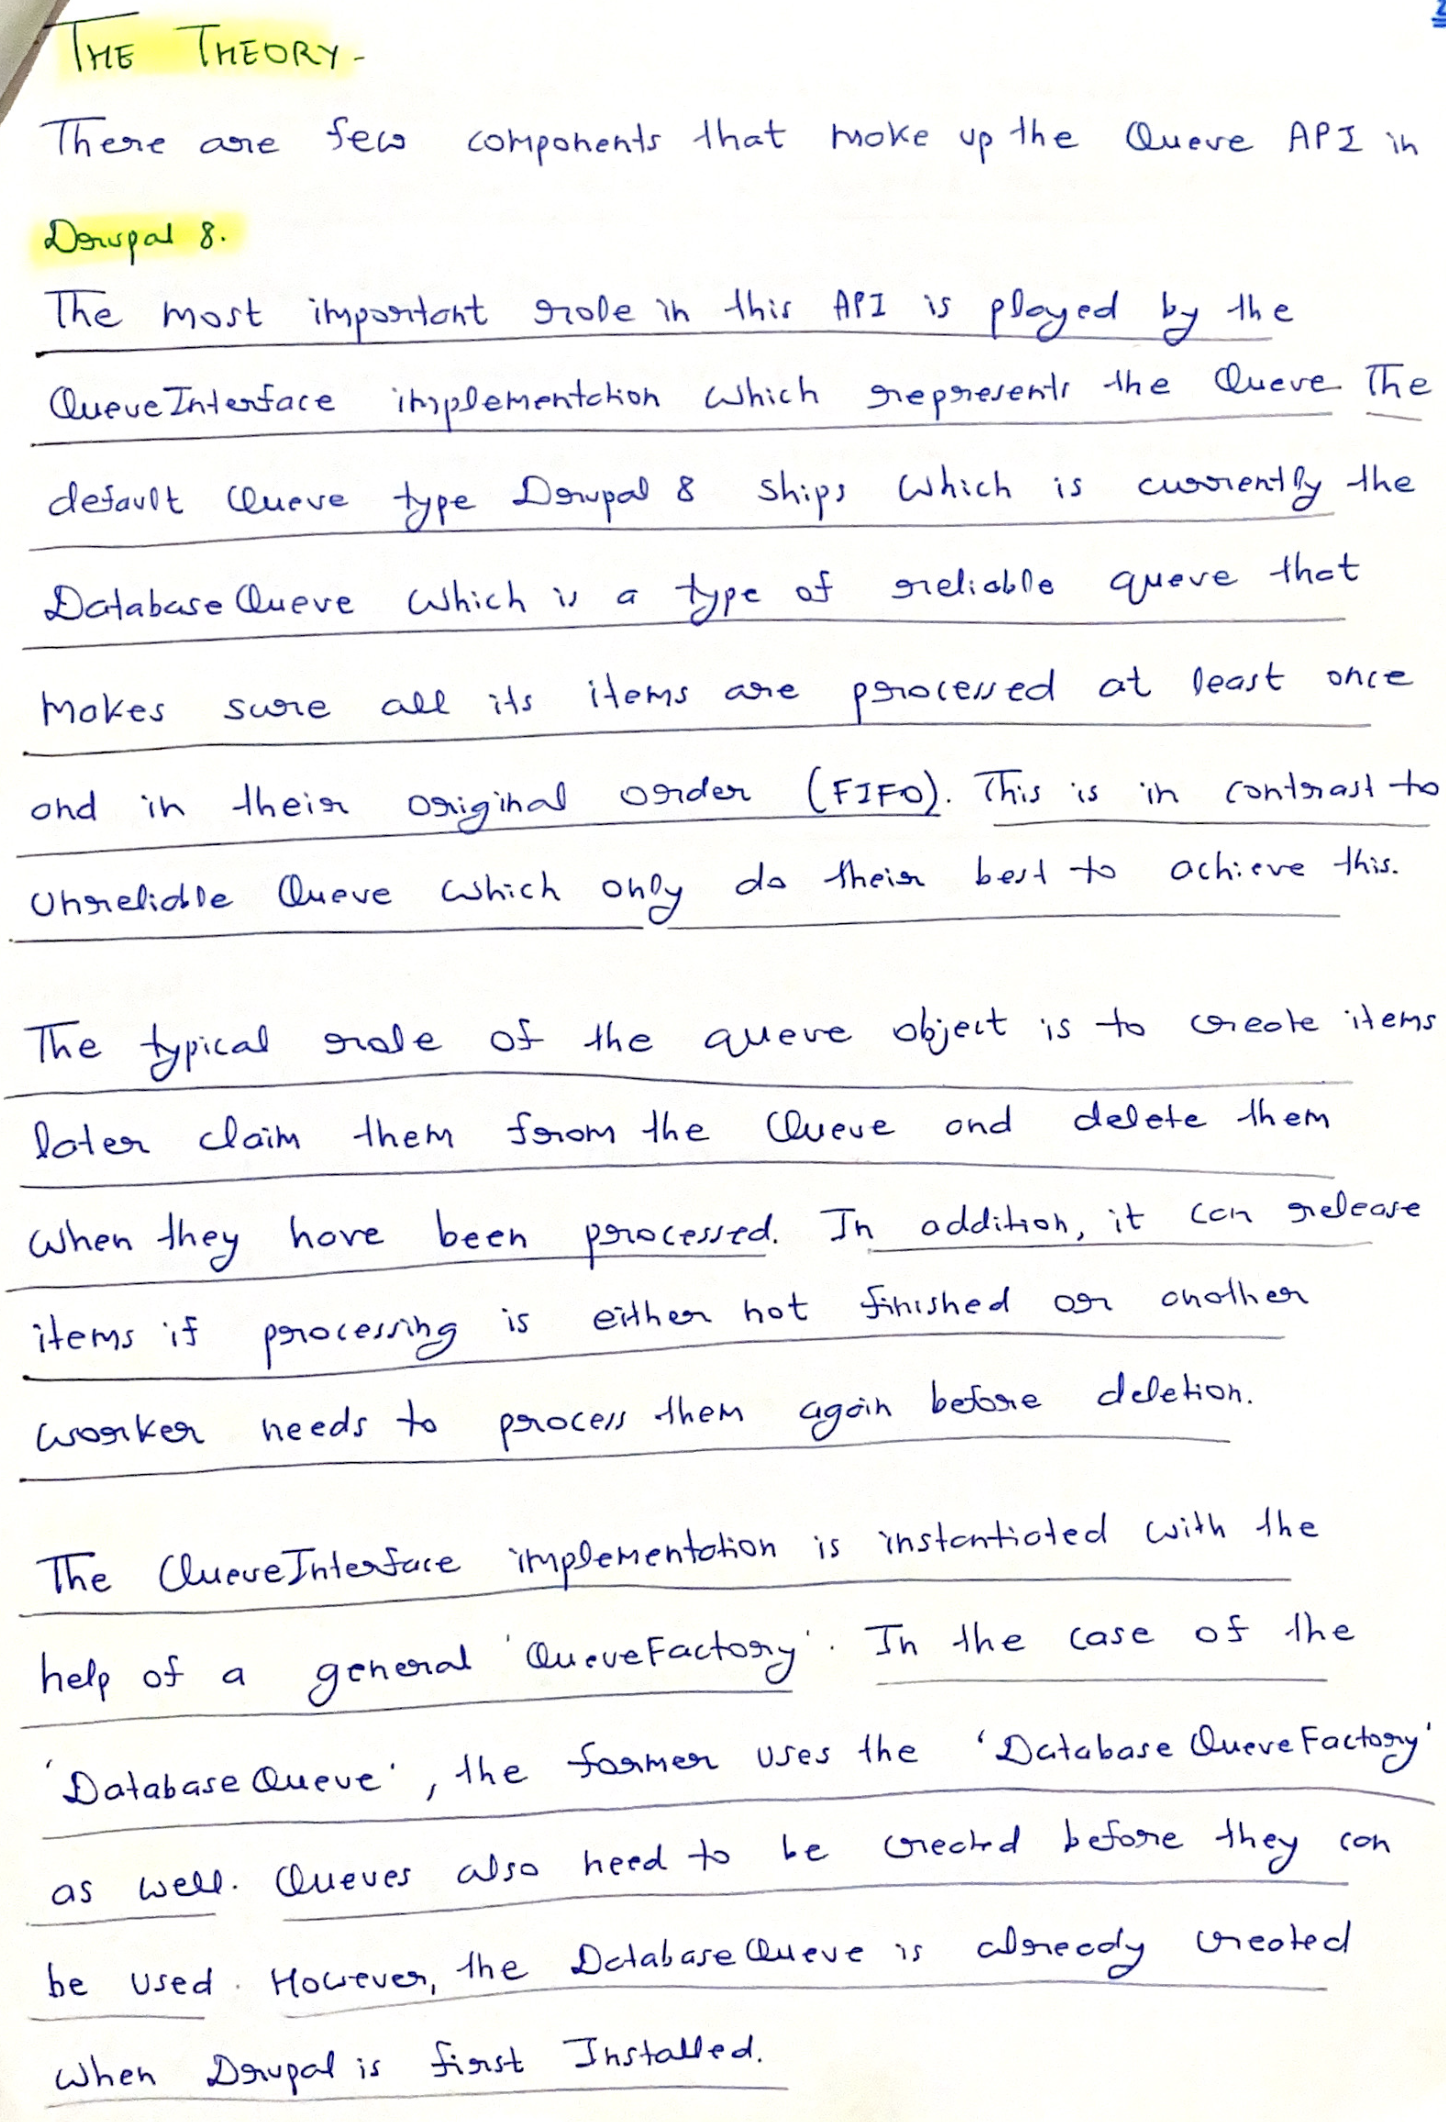 THE THEORY -
There are few components that make up the Queue API in
Drupal 8.
The most important role in this API is played by the
QueueInterface implementation which represents the Queue. The
default Queue type Drupal 8 ships which is currently the
DatabaseQueue which is a type of reliable queue that
makes sure all its items are processed at least once
and in their original order (FIFO). This is in contrast to
Unreliable Queue which only do their best to achieve this.
The typical role of the queue object is to create items
later claim them from the Queue and delete them
when they have been processed. In addition, it can release
items if processing is either not finished or another
worker needs to process them again before deletion.
The QueueInterface implementation is instantiated with the
help of a general 'QueueFactory'. In the case of the
'DatabaseQueue', the former uses the 'DatabaseQueueFactory'
as well. Queues also need to be created before they can
be used. However, the DatabaseQueue is already created
when Drupal is first Installed.